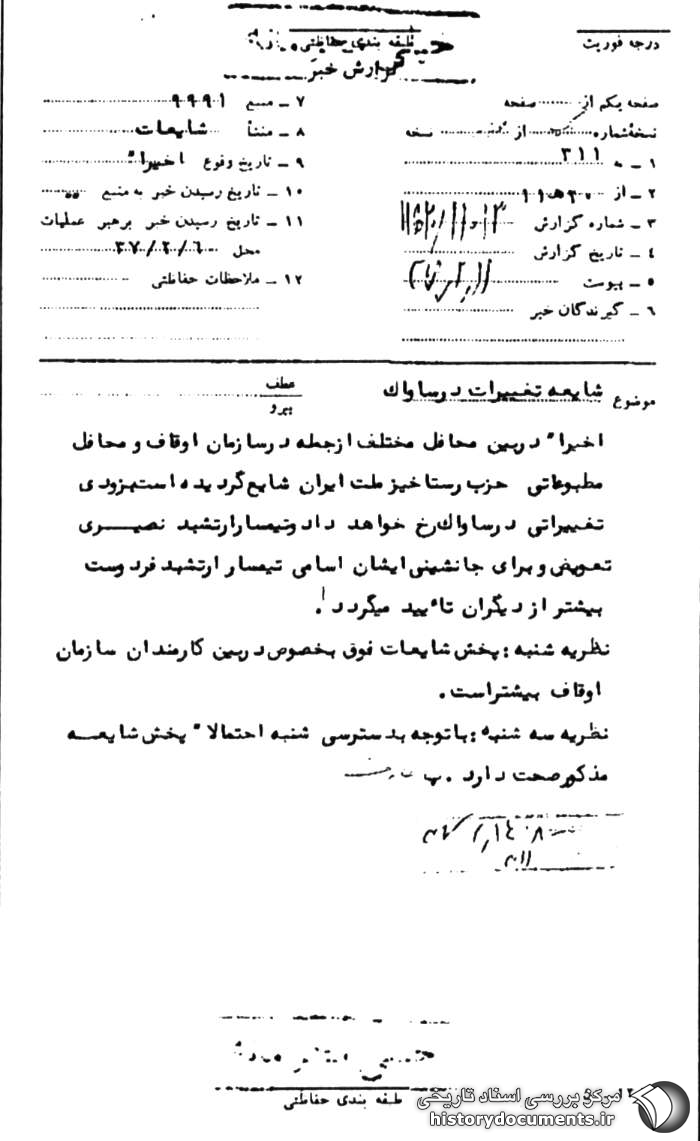 درجه فوریت
طبقه بندی حفاظتی
گزارش خبر
صفحه یکم از صفحه
نسخه شماره از نسخه
۱ ـ به ۳۱۱
۲ ـ از ۱۱ ه‍ ۲۰
۳ ـ شماره گزارش
۴ ـ تاریخ گزارش
۵ ـ پیوست
۶ ـ گیرندگان خبر
۷ ـ منبع ۹۹۹۱
۸ ـ منشأ شایعات
۹ ـ تاریخ وقوع اخیرا"
۱۰ ـ تاریخ رسیدن خبر به منبع
۱۱ ـ تاریخ رسیدن خبر برهبر عملیات
محل ۳۷/۲/۶
۱۲ ـ ملاحظات حفاظتی
موضوع شایعه تغییرات در ساواک
عطف
پیرو
اخیرا" در بین محافل مختلف از جمله در سازمان اوقاف و محافل
مطبوعاتی حزب رستاخیز ملت ایران شایع گردیده است بزودی
تغییراتی در ساواک رخ خواهد داد و تیمسار ارتشبد نصیری
تعویض و برای جانشینی ایشان اسامی تیمسار ارتشبد فردوست
بیشتر از دیگران تائید میگردد.
نظریه شنبه : پخش شایعات فوق بخصوص در بین کارمندان سازمان
اوقاف بیشتر است.
نظریه سه شنبه : با توجه بدسترسی شنبه احتمالا" پخش شایعه
مذکور صحت دارد. پ
طبقه بندی حفاظتی
مرکز بررسی اسناد تاریخی
historydocuments.ir